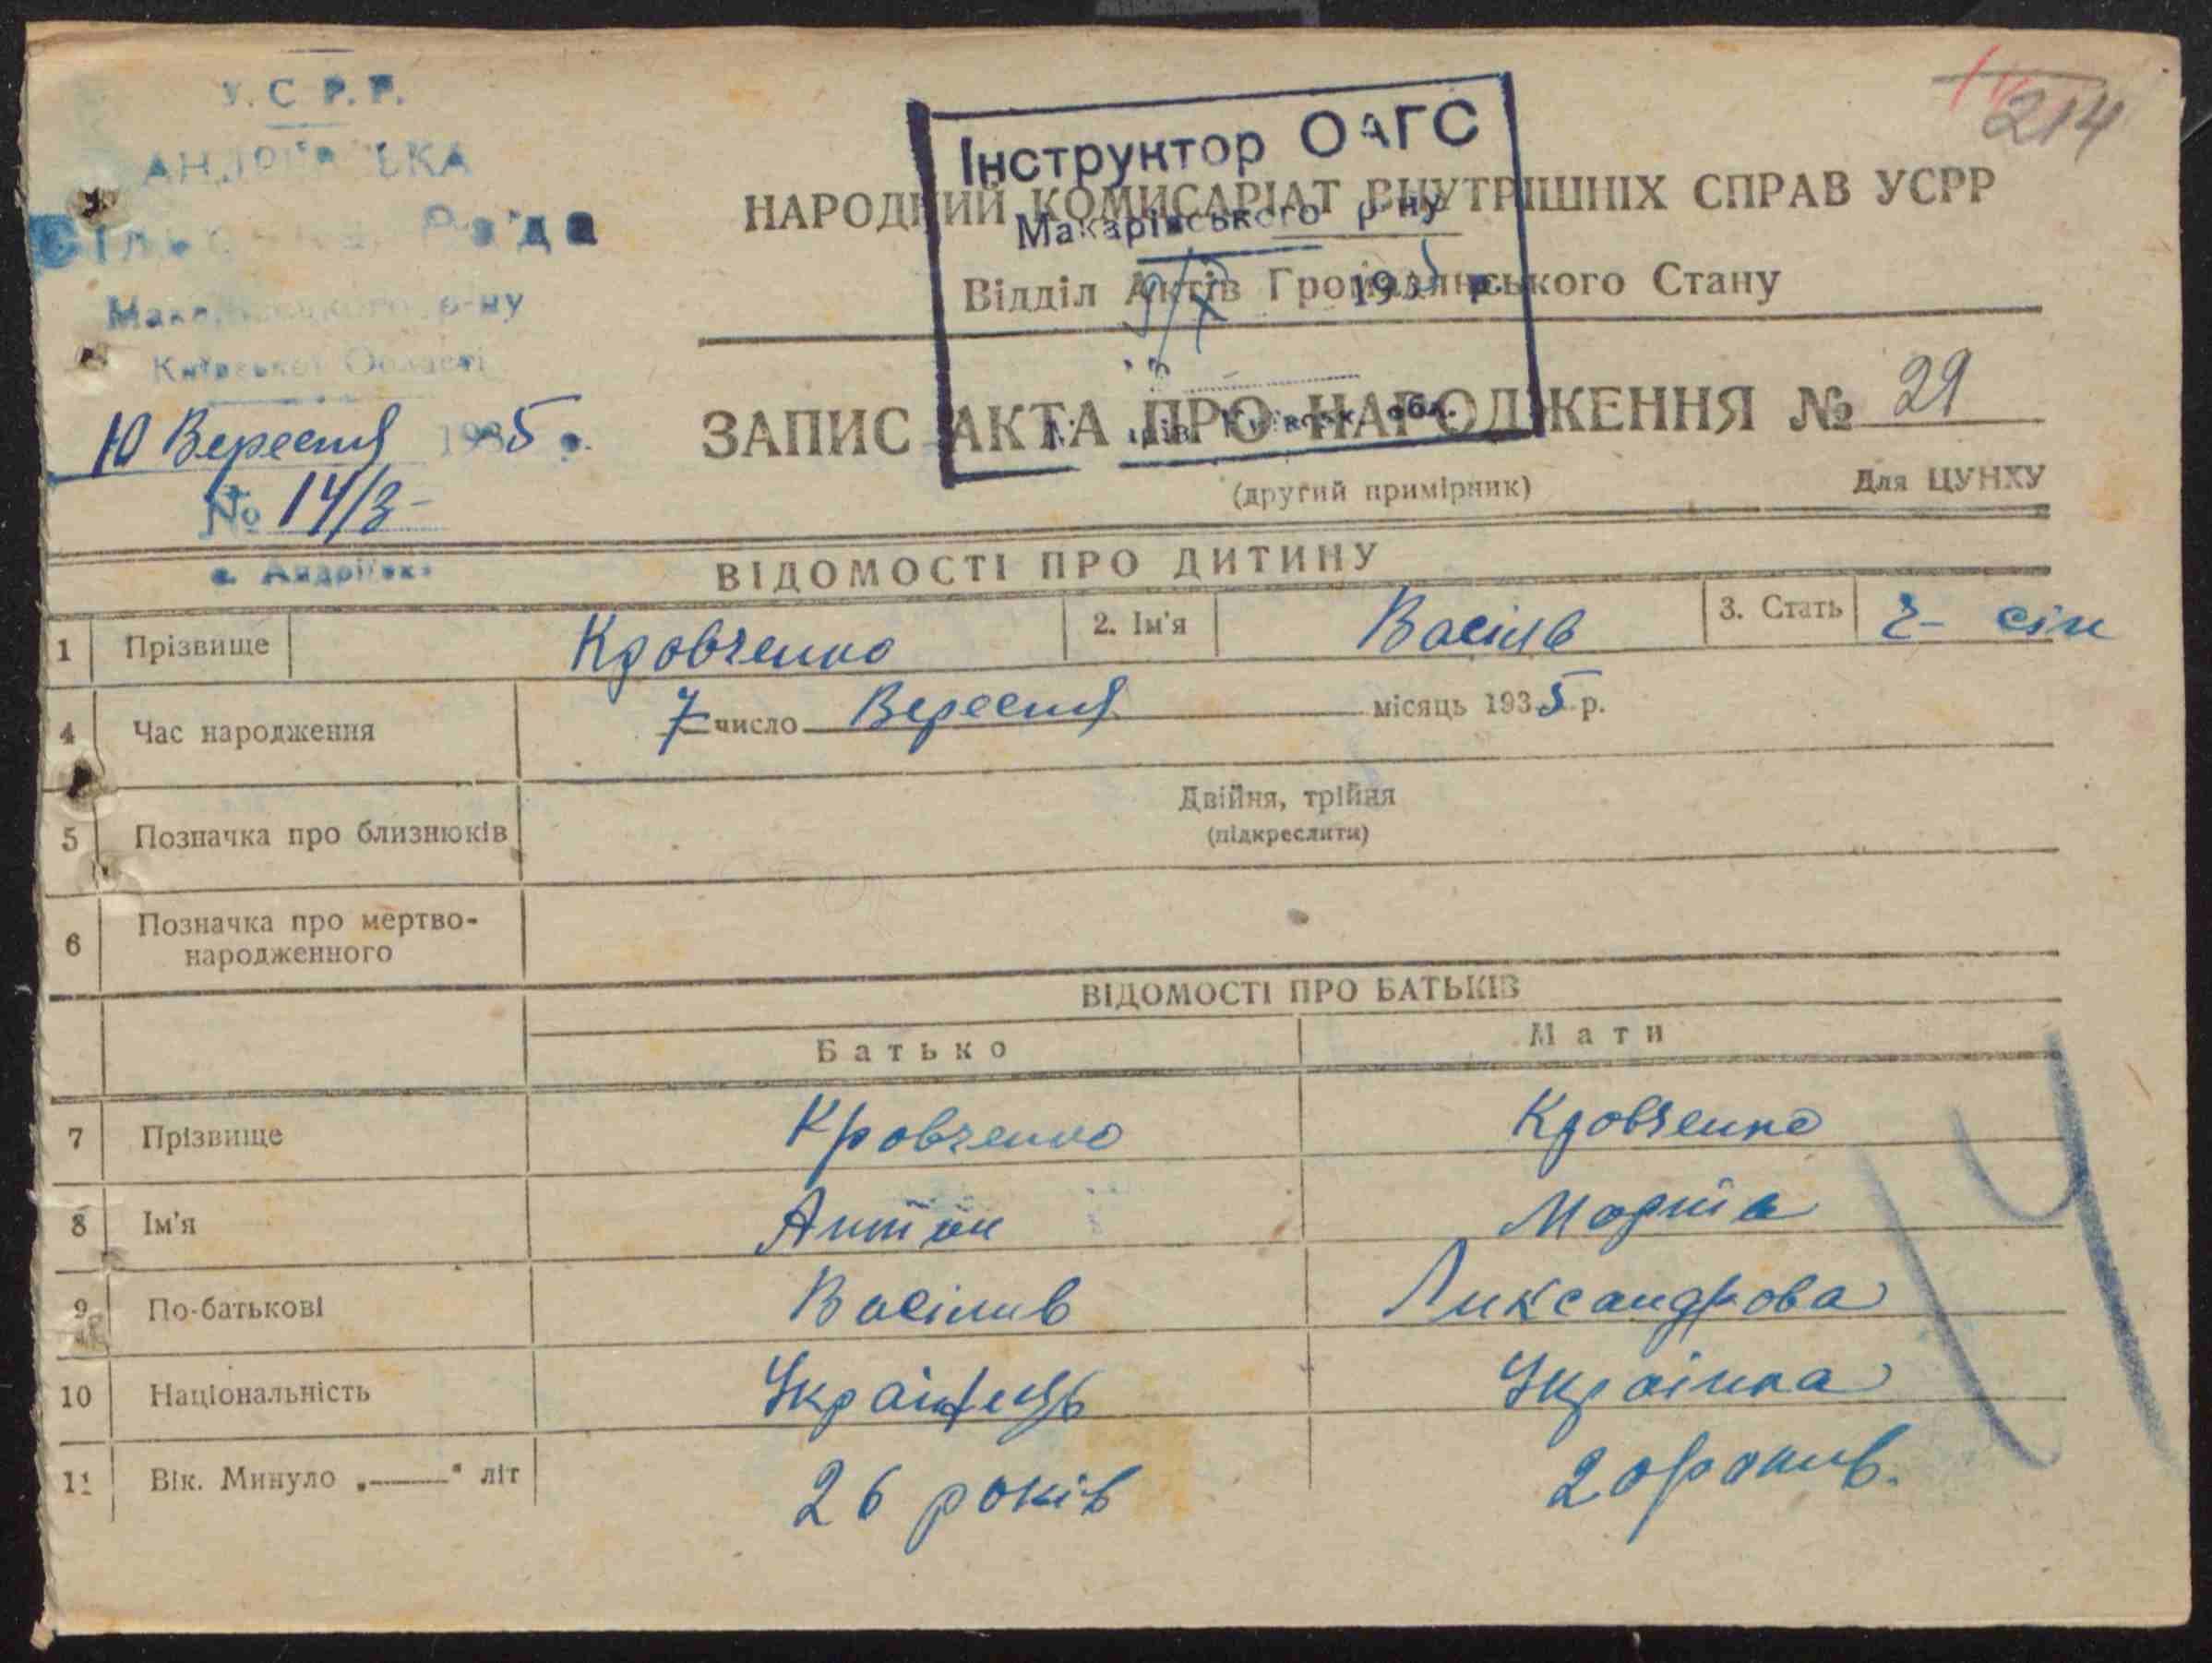 У.С.Р.Р.
АНДРІЇВСЬКА
Сільська Рада
р-ну
Київської Області
10 Вересня 1935 р.
№ 14/3-
с. Андріївка
214
Інструктор ОАГС
Макарівського р-ну
9/X 1935 р.
Київськ. обл.
НАРОДНИЙ КОМИСАРІАТ ВНУТРІШНІХ СПРАВ УСРР
Відділ Актів Громадянського Стану
ЗАПИС АКТА ПРО НАРОДЖЕННЯ № 29
(другий примірник) Для ЦУНХУ
ВІДОМОСТІ ПРО ДИТИНУ
1 Прізвище Кровченко 2. Ім'я Василь 3. Стать ч- сін
4 Час народження 7 число Вересня місяць 1935 р.
5 Позначка про близнюків Двійня, трійня
(підкреслити)
6 Позначка про мертво-
народженного
ВІДОМОСТІ ПРО БАТЬКІВ
Батько Мати
7 Прізвище Кровченко Кровченко
8 Ім'я Антон Марія
9 По-батькові Васілив Ликсандрова
10 Національність Українець Українка
11 Вік. Минуло „——" літ 26 років 20 роки в.